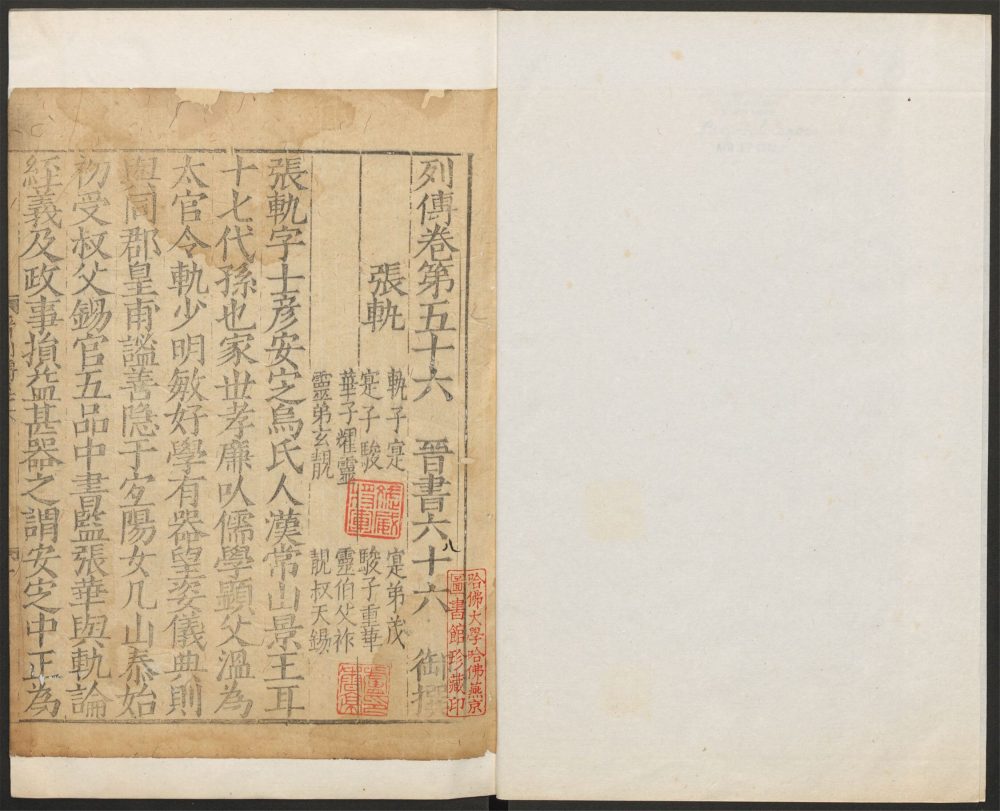 列傳卷第五十六 晉書六十六 御撰
八
張軌
軌子寔 寔弟茂
寔子駿 駿子重華
華子耀靈 靈伯父祚
靈弟玄靚 靚叔天錫
張軌字士彦安定烏氏人漢常山景王耳
十七代孫也家世孝廉以儒學顯父温為
太官令軌少明敏好學有器望姿儀典則
與同郡皇甫謐善隐于宜陽女几山泰始
初受叔父錫官五品中書監張華與軌論
經義及政事損益甚器之謂安定中正為
哈佛大學哈佛燕京
圖書館珍藏印